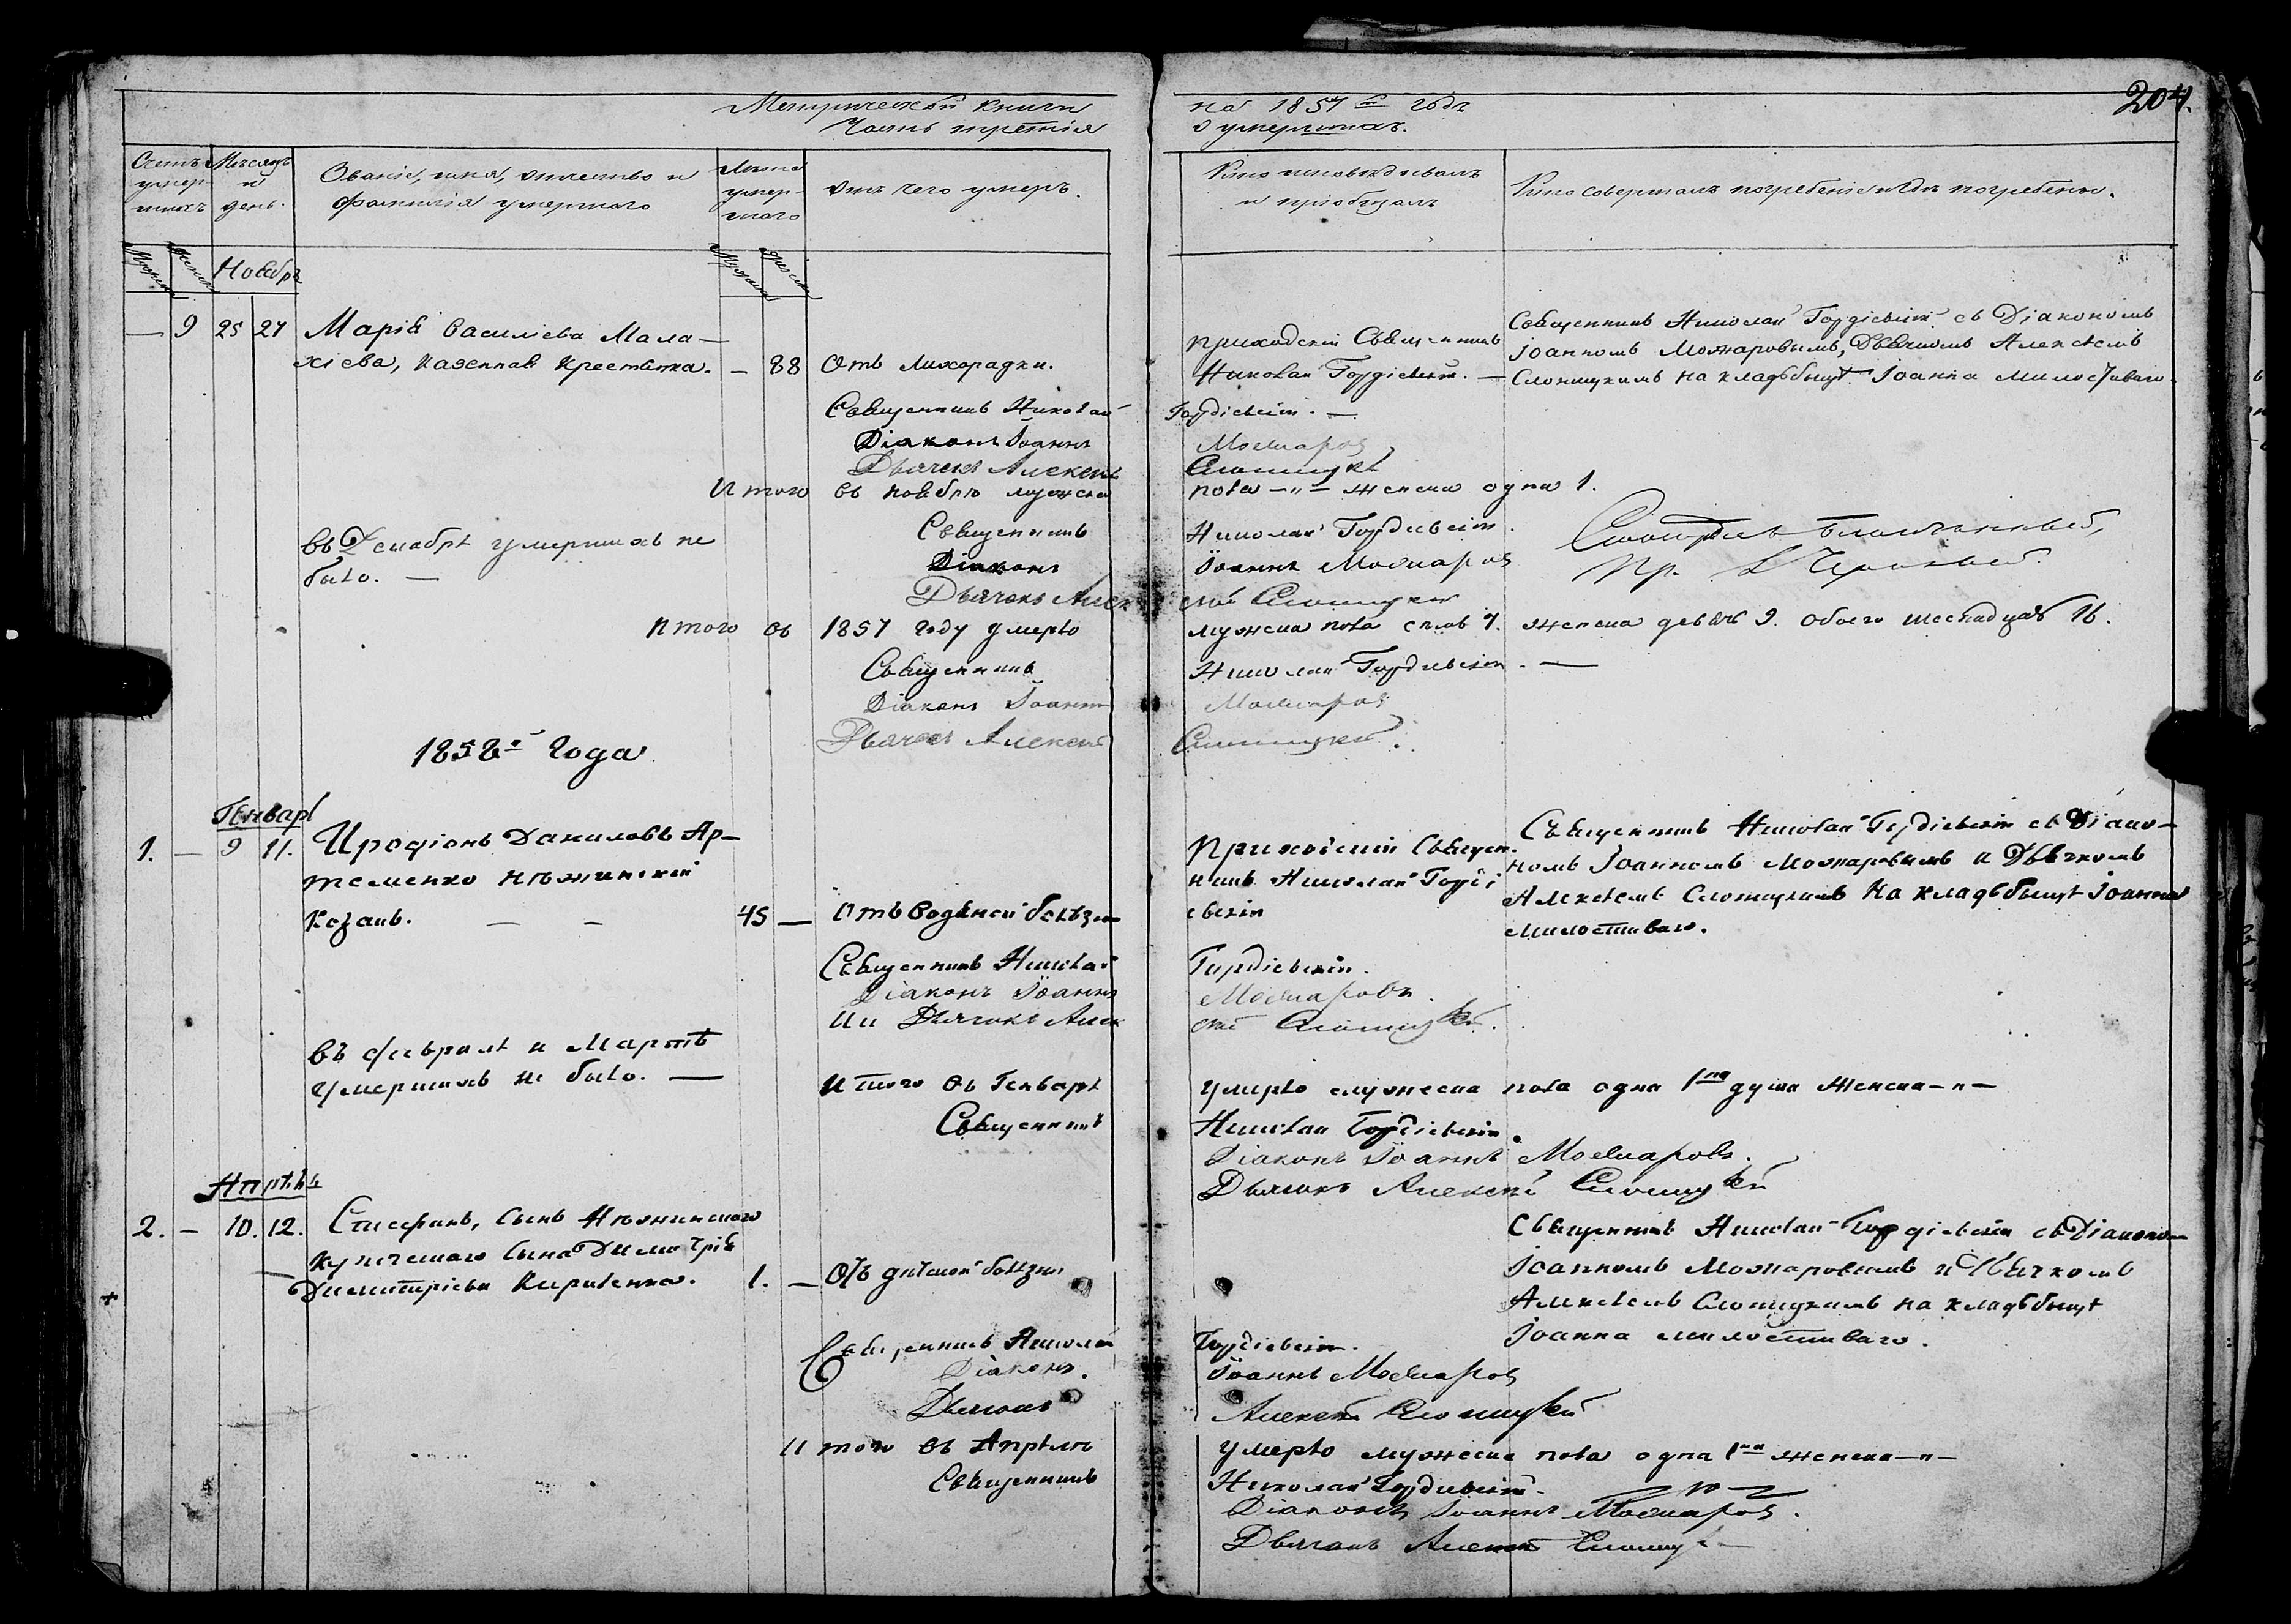 Метрической книги на 1857 й годъ 204.
Часть третія о умершихъ.
Счетъ умер-шихъ
Мѣсяцъ и день.
Званіе, имя, отчество и фамилія умершаго
Лѣта умер-шаго
Отъ чего умеръ.
Кто исповѣдывалъ и пріобщалъ
Кто совершалъ погребеніе и гдѣ погребены.
Ноябрь
— 9 25 27 Марія Василіева Мала-
хіева, казенная крестьянка. — 88 Отъ лихорадки.
Приходскій Священникъ
Николай Гордіевскій. —
Священникъ Николай Гордіевскій съ Діакономъ
Іоанномъ Можаровымъ, Дьячкомъ Алексѣемъ
Слоницкимъ на кладбыщѣ Іоанна Милостиваго.
Священникъ Николай Гордіевскій. —
Діаконъ Іоаннъ Можаровъ
Дьячекъ Алексѣй Слоницкій
Итого въ ноябрѣ мужеска пола —„— женска одна 1.
въ Декабрѣ умершихъ не
было. —
Священникъ Николай Гордіевскій.
Діаконъ Іоаннъ Можаровъ
Дьячекъ Алексѣй Слоницкій
Итого въ 1857 году умерло мужеска пола семь 7. женска девять 9. обоего шеснадцать 16.
Священникъ Николай Гордіевскій. —
Діаконъ Іоаннъ Можаровъ
Дьячекъ Алексѣй Слоницкій.
1858й года
Генварь
1. — 9 11. Иродіонъ Даниловъ Ар-
теменко нѣжинскій
козакъ. — — 45 — Отъ водяной болѣзни
Приходскій Священ-
никъ Николай Горді
евскій
Священникъ Николай Гордіевскій съ Діако-
номъ Іоанномъ Можаровымъ и Дьячкомъ
Алексѣемъ Слоницкимъ на кладбыщѣ Іоанна
милостиваго.
Священникъ Николай Гордіевскій.
Діаконъ Іоаннъ Можаровъ.
Дьячекъ Алексѣй Слоницкій.
въ февралѣ и Мартѣ
умершихъ не было. —
Итого въ Генварѣ умерло мужеска пола одна 1на душа женска —„—
Священникъ Николай Гордіевскій.
Діаконъ Іоаннъ Можаровъ.
Дьячекъ Алексѣй Слоницкій
Апрѣль
2. — 10. 12. Стефанъ, сынъ Нѣжинскаго
купеческаго сына Димитрія
Димитріева Кириленка. 1. — Отъ дѣтской болѣзни
Священникъ Николай Гордіевскій съ Діакономъ
Іоанномъ Можаровымъ и Дьячкомъ
Алексѣемъ Слоницкимъ на кладбыщѣ
Іоанна милостиваго.
Священникъ Николай Гордіевскій.
Діаконъ. Іоаннъ Можаровъ
Дьячекъ Алексѣй Слоницкій
Итого въ Апрѣлѣ умерло мужеска пола одна 1на женска —„—
Священникъ Николай Гордіевскій.
Діаконъ Іоаннъ Можаровъ.
Дьячекъ Алексѣй Слоницкій